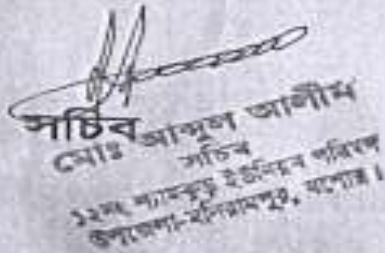 সচিব
মোঃ আব্দুল আলীম
সচিব
১২নং শ্যামকুড় ইউনিয়ন পরিষদ
উপজেলা-মনিরামপুর, যশোর।